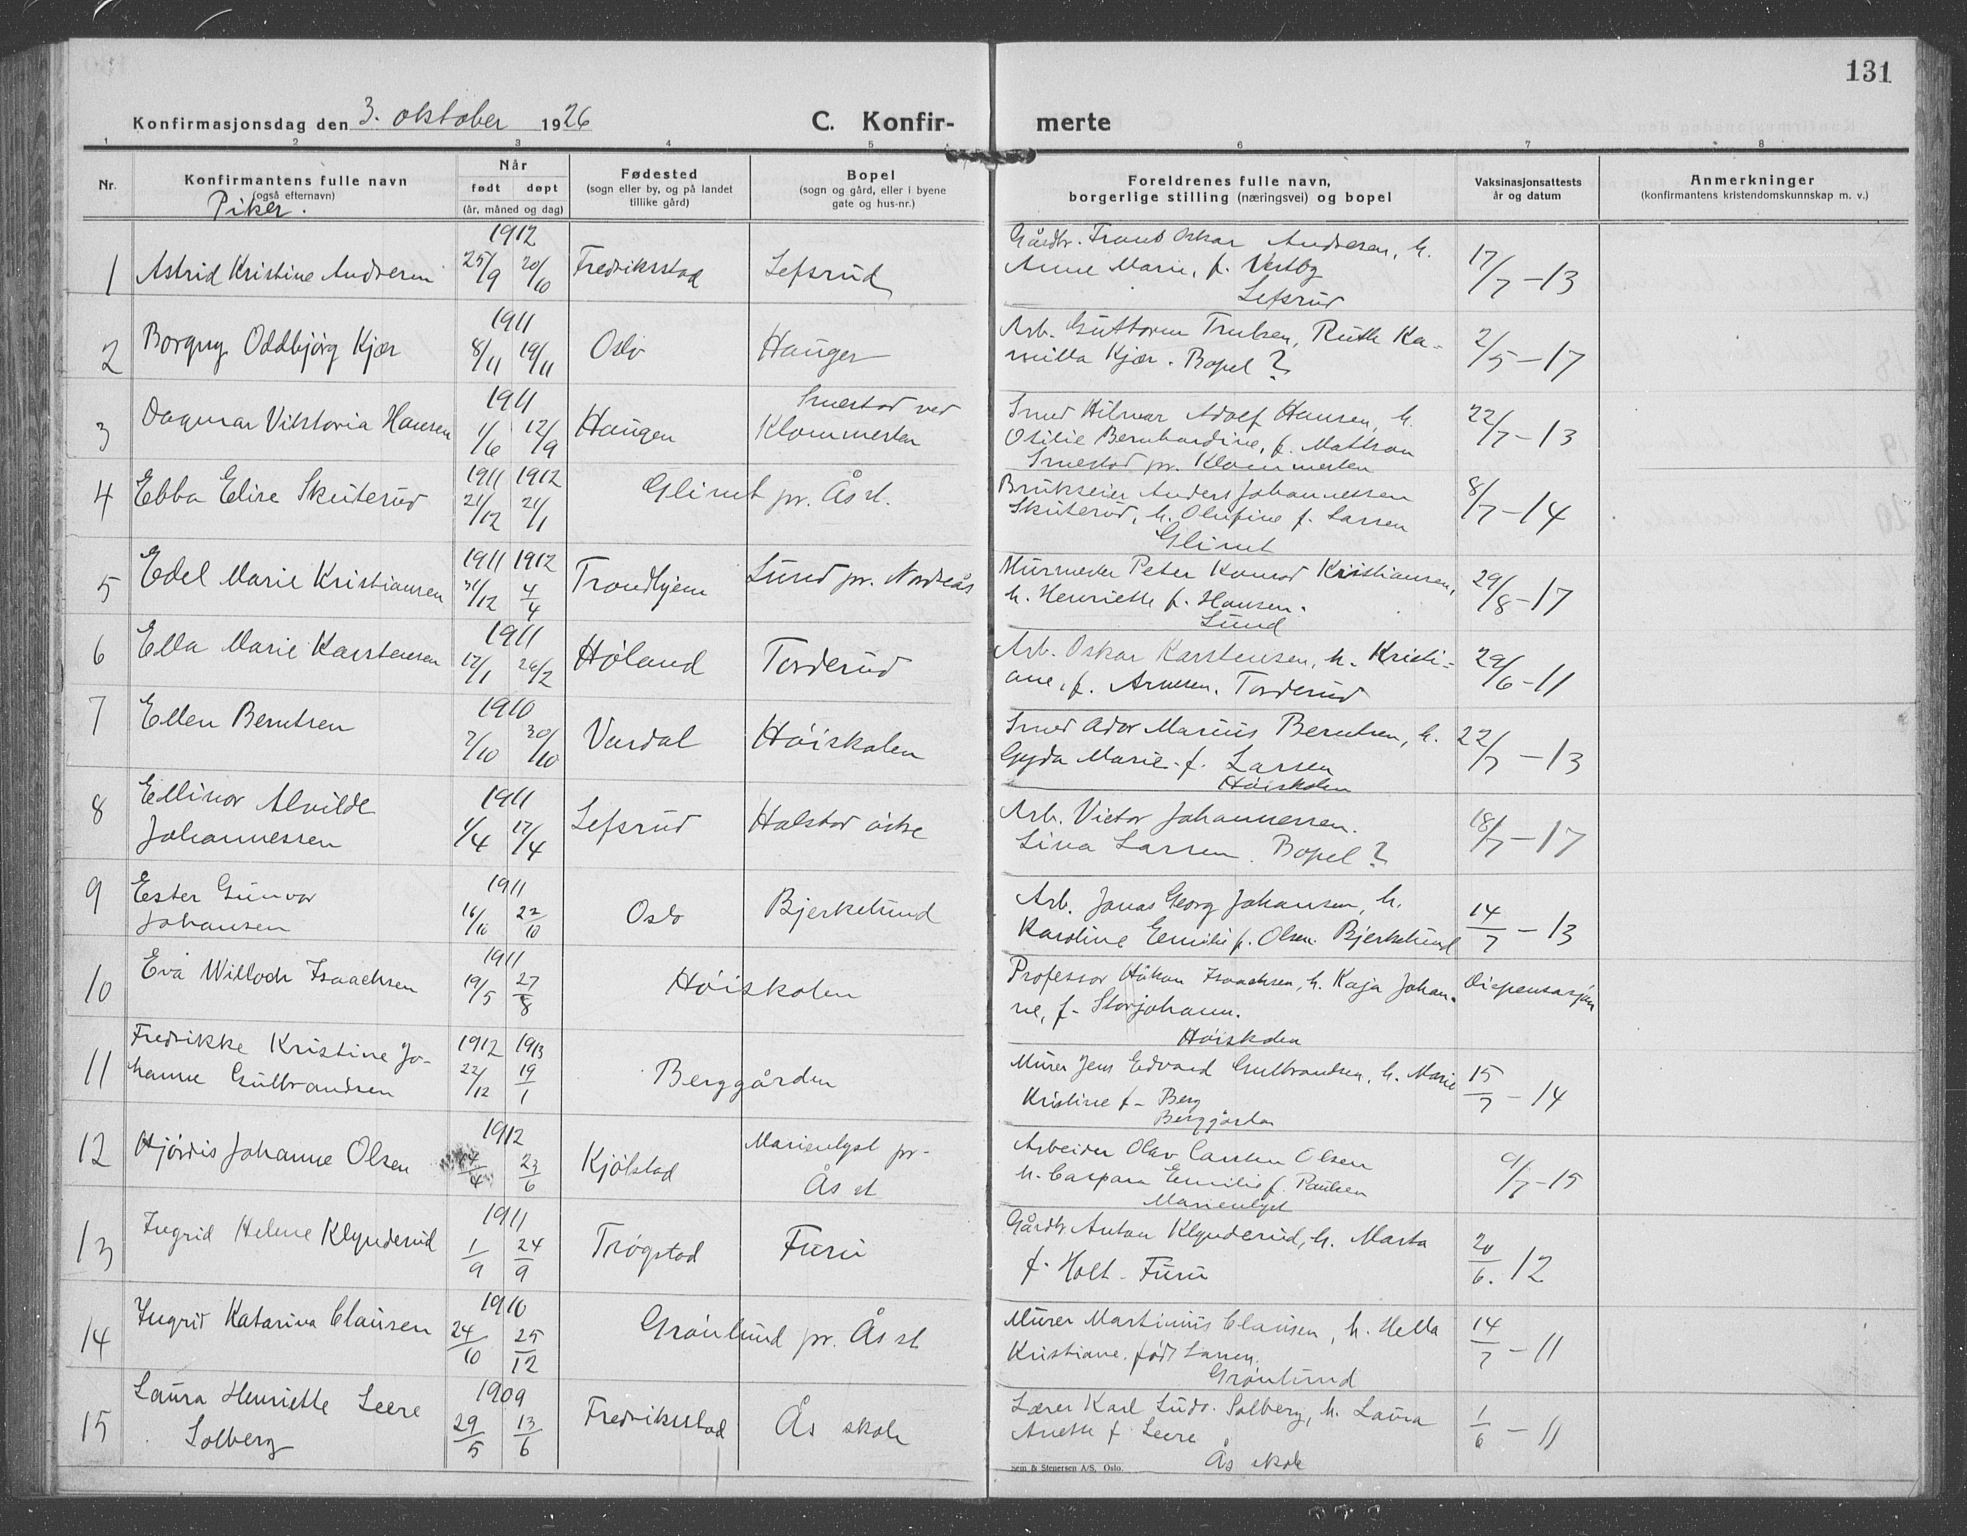 131
Konfirmasjonsdag den 3. oktober 1926 C. Konfir- merte
1 2 3 4 5 6 7 8
Nr. Konfirmantens fulle navn (også efternavn) Når født døpt (år, måned og dag) Fødested (sogn eller by, og på landet tillike gård) Bopel (sogn og gård, eller i byene gate og hus-nr.) Foreldrenes fulle navn, borgerlige stilling (næringsvei) og bopel Vaksinasjonsattests år og datum Anmerkninger (konfirmantens kristendomskunnskap m. v.)
Piker.
1 Astrid Kristine Andresen 1912 25/9 20/10 Fredriksstad Lefsrud Gårdbr. Frants Oskar Andresen, h.
Anne Marie, f. Vestby 17/7 - 13
Lefsrud
2 Borgny Oddbjørg Kjær 1911 8/11 19/11 Oslo Hauger Arb. Guttorm Trulsen, Ruth Ka-
milla Kjær. Bopel? 2/5 - 17
3 Dagmar Viktoria Hansen 1911 1/6 12/9 Haugen Smestad ved
Klommesten Smed Hilmar Adolf Hansen, h.
Otilie Bernhardine, f. Mattson 22/7 - 13
Smestad pr. Klommesten
4 Ebba Elise Skuterud 1911 21/12 1912 21/1 Glimt pr. Ås st. Brukseier Anders Johannessen
Skuterud, h. Olufine f. Larsen 8/7 - 14
Glimt
5 Edel Marie Kristiansen 1911 31/12 1912 4/4 Trondhjem Lund pr. Nordås Murmester Peter Konrad Kristiansen,
h. Henriette f. Hansen. 29/8 - 17
Lund
6 Ella Marie Karstensen 1911 17/1 26/2 Høland Torderud Arb. Oskar Karstensen, h. Kristi-
ane, f. Arnesen. Torderud 29/6 - 11
7 Ellen Berntsen 1910 2/10 30/10 Vardal Høiskolen Smed Ador Marius Berntsen, h.
Gyda Marie f. Larsen 22/7 - 13
Høiskolen
8 Ellinor Alvilde
Johannessen 1911 1/4 17/4 Lefsrud Holstad østre Arb. Victor Johannessen.
Lina Larsen. Bopel? 18/7 - 17
9 Ester Gunvor
Johansen 1911 16/10 22/10 Oslo Bjerkelund Arb. Jonas Georg Johansen, h.
Karoline Emilie f. Olsen. Bjerkelund 14/7 - 13
10 Eva Willoch Isaachsen 1911 19/5 27/8 Høiskolen Professor Håkon Isaachsen, h. Kaja Johan-
ne, f. Storjohann. Dispensasjon
Høiskolen
11 Fredrikke Kristine Jo-
hanne Gulbrandsen 1912 22/12 1913 19/1 Berggården Murer Jens Edvard Gulbrandsen, h. Marie
Kristine f. Berg 15/7 - 14
Berggården
12 Hjørdis Johanne Olsen 1912 14/4 23/6 Kjølstad Marienlyst pr.
Ås st Arbeider Olav Carsten Olsen
h. Caspara Emilie f. Paulsen 9/7 - 15
Marienlyst
13 Ingrid Helene Klynderud 1911 1/9 24/9 Trøgstad Furu Gårdbr. Anton Klynderud, h. Marta
f. Holt. Furu 20/6. 12
14 Ingrid Katarina Clausen 1910 24/10 25/12 Grønlund pr. Ås st Murer Martinius Clausen, h. Hella
Kristiane født Larsen. 14/7 - 11
Grønlund
15 Laura Henriette Leere
Solberg 1909 29/5 13/6 Fredriksstad Ås skole Lærer Karl Ludv. Solberg, h. Laura
Anette f. Leere 1/6 - 11
Ås skole
Sem & Stenersen A/S, Oslo.